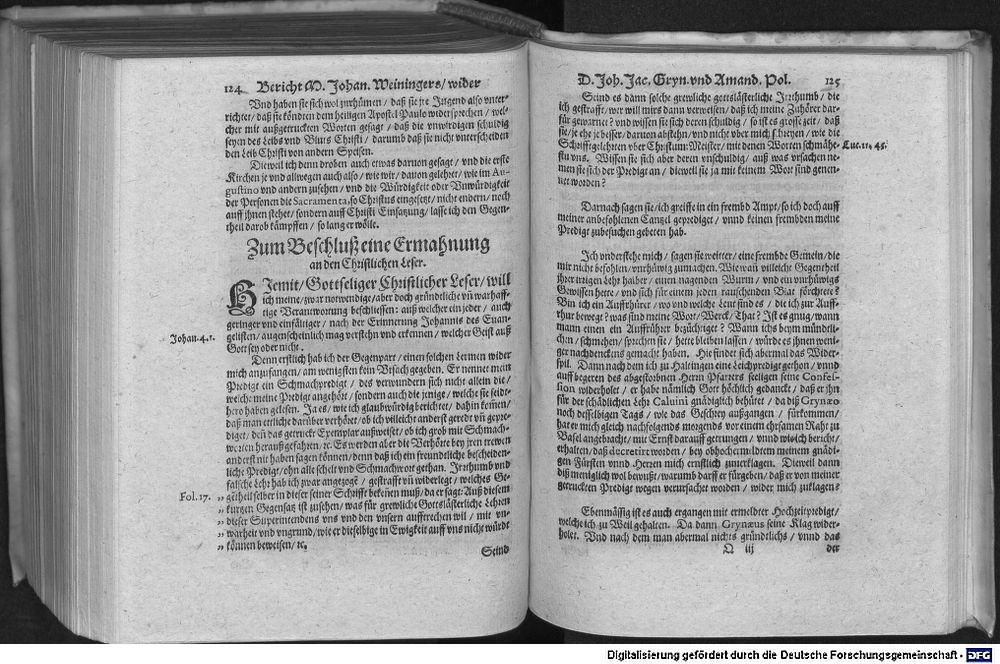 124 Bericht M. Johan. Weiningers / wider
Vnd haben sie sich wol zurhümen / daß sie jre Jugend also vnter-
richtet / daß sie köndten dem heiligen Apostel Paulo widersprechen / wel-
cher mit außgetruckten Worten gesagt / daß die vnwirdigen schuldig
seyen des Leibs vnd Bluts Christi / darumb daß sie nicht vnterscheiden
den Leib Christi von andern Speisen.
Dieweil ich denn droben auch etwas daruon gesagt / vnd die erste
Kirchen je vnd allwegen auch also / wie wir / daruon gelehret / wie im Au-
gustino vnd andern zusehen / vnd die Würdigkeit oder Vnwürdigkeit
der Personen die Sacramenta, so Christus eingesetzt / nicht endern / noch
auff jhnen stehet / sondern auff Christi Einsatzung / lasse ich den Gegen-
theil darob kämpffen / so lang er wölle.
Zum Beschluß eine Ermahnung
an den Christlichen Leser.
HJemit / Gottseliger Christlicher Leser / will
ich meine / zwar notwendige / aber doch gründtliche vñ warhaff-
tige Verantwortung beschliessen: auß welcher ein jeder / auch
geringer vnd einfältiger / nach der Erinnerung Johannis des Euan-
gelisten / augenscheinlich mag verstehn vnd erkennen / welcher Geist auß
Johan. 4. 1.
Gott sey oder nicht.
Denn erstlich hab ich der Gegenpart / einen solchen Lermen wider
mich anzufangen / am wenigsten kein Vrsach gegeben. Er nennet mein
Predigt ein Schmachpredigt / des verwundern sich nicht allein die /
welche meine Predigt angehört / sondern auch die jenige / welche sie seidt-
hero haben gelesen. Ja es / wie ich glaubwürdig berichtet / dahin komẽ /
daß man etliche darüber verhöret / ob ich villeicht anderst geredt vñ gepre-
diget / deñ das getruckt Exemplar außweiset / ob ich grob mit Schmach-
worten herauß gefahren / &c. Es werden aber die Verhörte bey jren trewen
anderst nit haben sagen können / denn daß ich ein freundtliche bescheiden-
liche Predig / ohn alle schelt vnd Schmachwort gethan. Irrthumb vnd
falsche Lehr hab ich zwar angezogẽ / gestrafft vñ widerlegt / welches Ge-
Fol. 17. „ gẽtheil selber in dieser seiner Schrifft bekeñen muß / da er sagt: Auß diesem
„ kurtzen Gegensatz ist zusehen / was für grewliche Gottslästerliche Lehren
„ dieser Superintendens vns vnd den vnsern auffrechen wil / mit vn-
„ warheit vnd vngrund / wie er dieselbige in Ewigkeit auff vns nicht würdt
„ können beweisen / &c.
Seind
D. Joh. Jac. Gryn. vnd Amand. Pol. 125
Seind es dann solche grewliche gottslästerliche Irrthumb / die
ich gestrafft / wer will mirs dann verweisen / daß ich meine Zuhörer dar-
für gewarnet? vnd wissen sie sich deren schuldig / so ist es grosse zeit / daß
sie / je ehe je besser / daruon abstehn / vnd nicht vber mich schreyen / wie die
Schrifftgelehrten vber Christum: Meister / mit denen Worten schmähe-
Luc. 11, 45.
stu vns. Wissen sie sich aber deren vnschuldig / auß was vrsachen ne-
men sie sich der Predigt an / dieweil sie ja mit keinem Wort sind genen-
net worden?
Darnach sagen sie / ich greiffe in ein frembd Ampt / so ich doch auff
meiner anbefohlenen Cantzel geprediget / vnnd keinen frembden meine
Predigt zubesuchen gebeten hab.
Ich vnderstehe mich / sagen sie weiter / eine frembde Gemein / die
mir nicht befohlen / vnrhüwig zumachen. Wie wañ villeicht Gegentheil
jhrer irrigen Lehr halber / einen nagenden Wurm / vnd ein vnrhüwigs
Gewissen hette / vnd sich für einem jeden rauschenden Blat förchtete?
Bin ich ein Auffrhürer / wo vnd welche Leut sind es / die ich zur Auff-
rhur bewegt? was sind meine Wort / Werck / That? Ist es gnug / wann
mann einen ein Auffrührer bezüchtiget? Wann ichs beym mündtli-
chen / schmehen / sprechen sie / hette bleiben lassen / würde es jhnen weni-
ger nachdenckens gemacht haben. Hie findet sich abermal das Wider-
spil. Dann nach dem ich zu Haltingen eine Leichpredig gethon / vnnd
auff begeren des abgestorbnen Herrn Pfarrers seeligen seine Confes-
sion widerholet / er habe nämlich Gott höchlich gedanckt / daß er jhn
für der schädlichen Lehr Caluini gnädiglich behütet / da diß Grynæo
noch desselbigen Tags / wie das Geschrey außgangen / fürkommen /
hat er mich gleich nachfolgends morgends vor einem ehrsamen Raht zu
Basel angebracht / mit Ernst darauff getrungen / vnnd wie ich bericht /
erhalten / daß decretirt worden / bey obhochermeldtem meinem gnädi-
gen Fürsten vnnd Herren mich ernstlich zuuerklagen. Dieweil dann
diß meniglich wol bewußt / warumb darff er fürgeben / daß er von meiner
getruckten Predigt wegen verursachet worden / wider mich zuklagen?
Ebenmässig ist es auch ergangen mit ermeldter Hochzeitpredigt /
welche ich zu Weil gehalten. Da dann Grynæus seine Klag wider-
holet. Vnd nach dem man abermal nichts gründtlichs / vnnd das
Q iij der
Digitalisierung gefördert durch die Deutsche Forschungsgemeinschaft - DFG